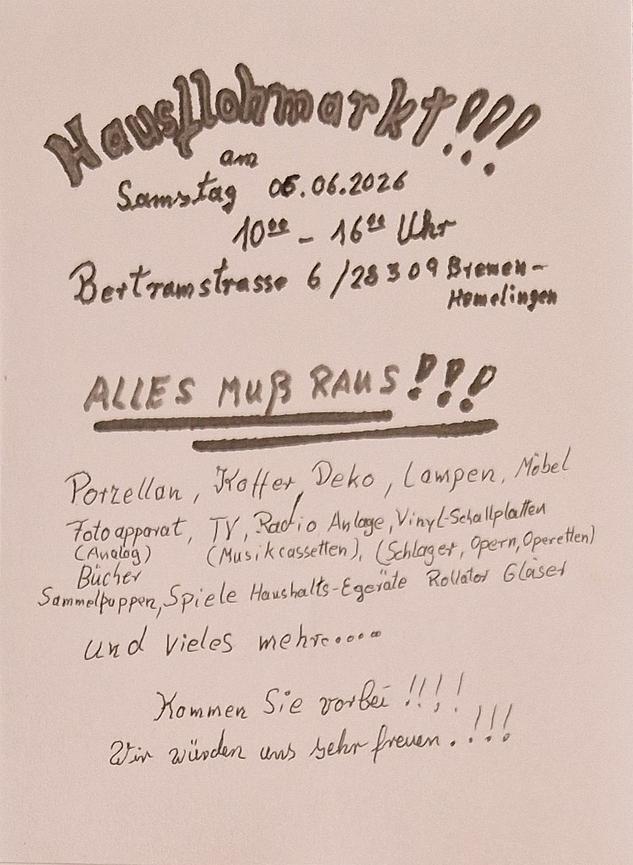 Hausflohmarkt!!!
am
Samstag 06.06.2026
10⁰⁰ - 16⁰⁰ Uhr
Bertramstrasse 6 / 28309 Bremen-
Hemelingen
ALLES MUß RAUS!!!
Porzellan, Koffer, Deko, Lampen, Möbel
Fotoapparat, TV, Radio Anlage, Vinyl-Schallplatten
(Analog) (Musikcassetten), (Schlager, Opern, Operetten)
Bücher
Sammelpuppen, Spiele Haushalts-Egeräte Rollator Gläser
und vieles mehr.....
Kommen Sie vorbei !!!!
Wir würden uns sehr freuen.!!!